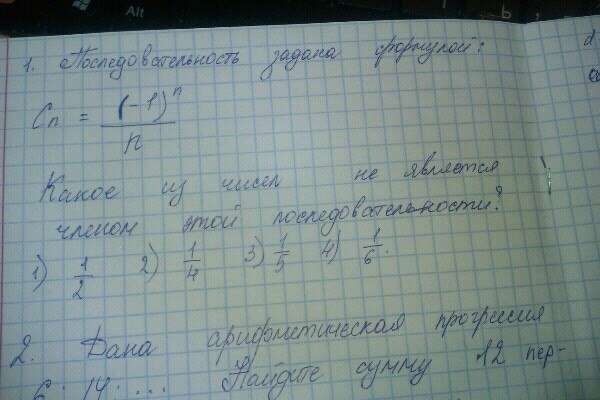 Alt
1. Последовательность задана формулой:
Cn = (-1)^n / n
Какое из чисел не является
членом этой последовательности?
1) 1/2 2) 1/4 3) 1/5 4) 1/6.
2. Дана арифметическая прогрессия
6; 14; ... Найдите сумму 12 пер-